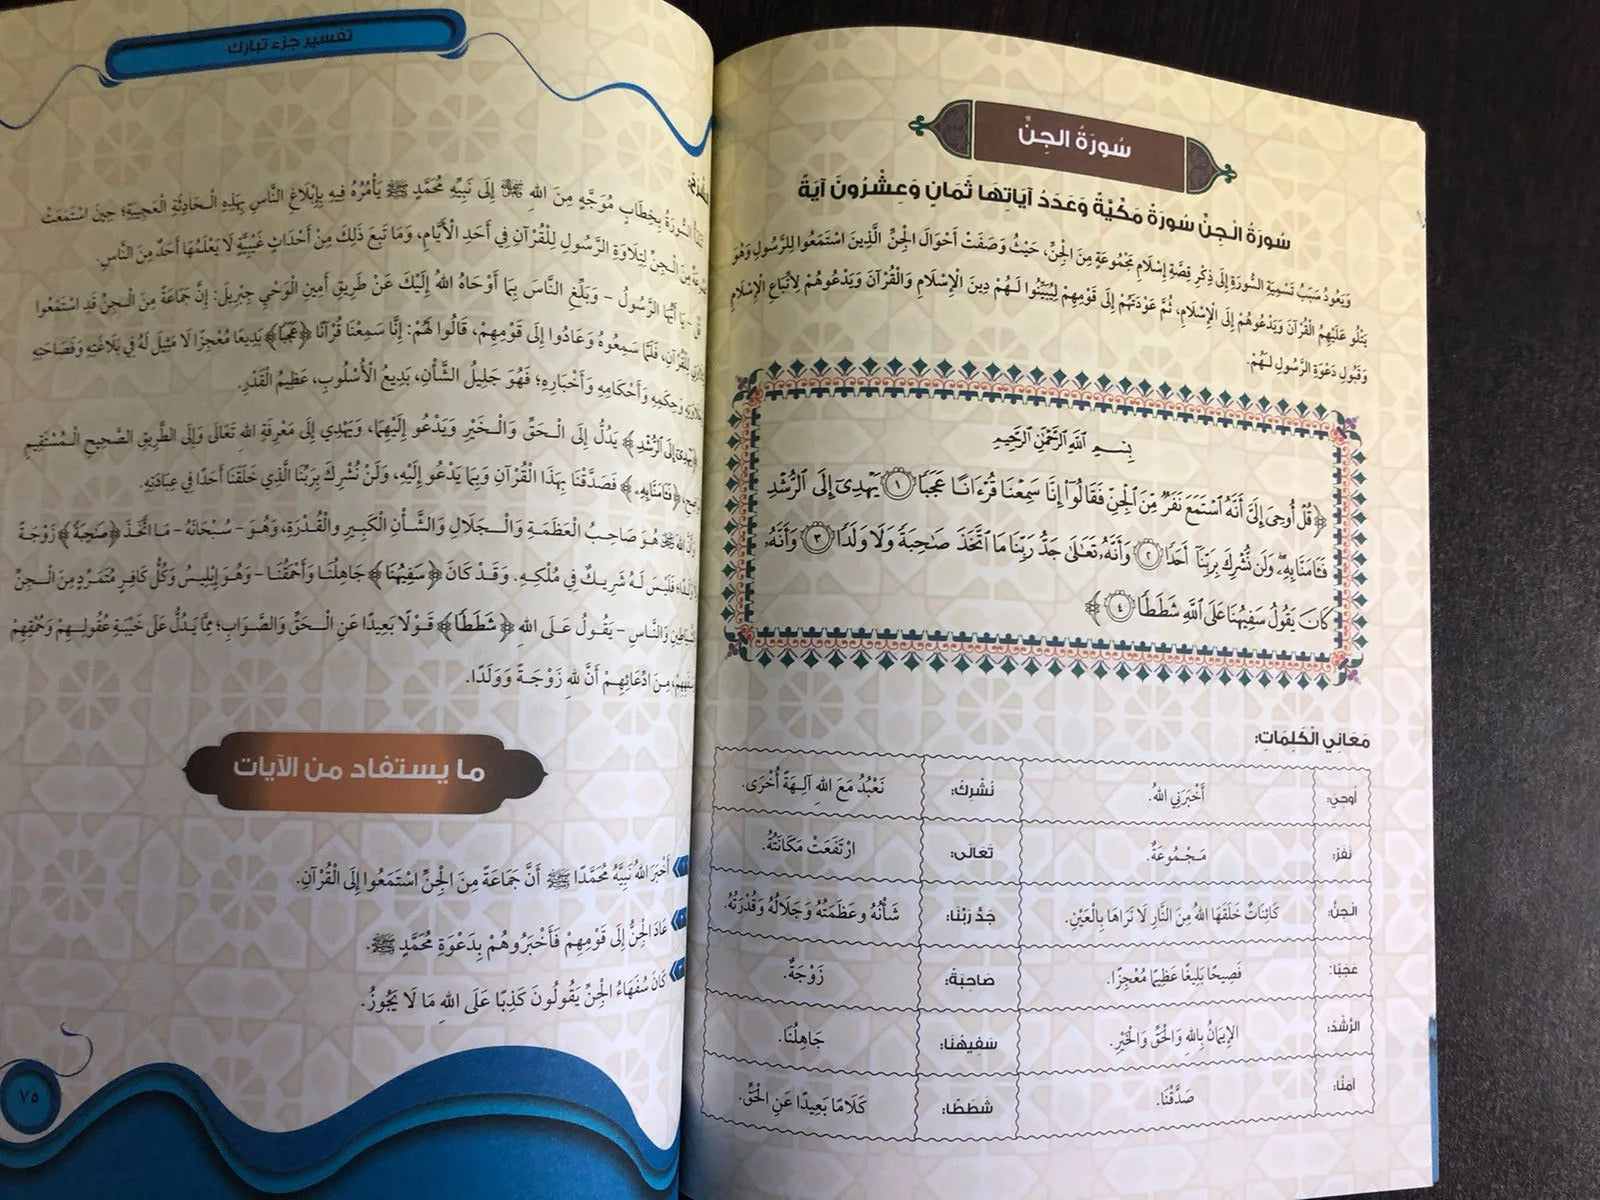 سُورَةُ الجِنِّ
سُورَةُ الْجِنِّ سُورَةٌ مَكِّيَّةٌ وَعَدَدُ آيَاتِهَا ثَمَانٍ وَعِشْرُونَ آيَةً
وَيَعُودُ سَبَبُ تَسْمِيَةِ السُّورَةِ إِلَى ذِكْرِ قِصَّةِ إِسْلَامِ مَجْمُوعَةٍ مِنَ الْجِنِّ، حَيْثُ وَصَفَتْ أَحْوَالَ الْجِنِّ الَّذِينَ اسْتَمَعُوا لِلرَّسُولِ وَهُوَ
يَتْلُو عَلَيْهِمُ الْقُرْآنَ وَيَدْعُوهُمْ إِلَى الْإِسْلَامِ، ثُمَّ عَوْدَتَهُمْ إِلَى قَوْمِهِمْ لِيُبَيِّنُوا لَهُمْ دِينَ الْإِسْلَامِ وَالْقُرْآنَ وَيَدْعُوهُمْ لِاتِّبَاعِ الْإِسْلَامِ
وَقَبُولِ دَعْوَةِ الرَّسُولِ لَهُمْ.
بِسْمِ اللَّهِ الرَّحْمَٰنِ الرَّحِيمِ
﴿قُلْ أُوحِيَ إِلَيَّ أَنَّهُ ٱسْتَمَعَ نَفَرٌ مِّنَ ٱلْجِنِّ فَقَالُوٓا۟ إِنَّا سَمِعْنَا قُرْءَانًا عَجَبًا ١ يَهْدِىٓ إِلَى ٱلرُّشْدِ
فَـَٔامَنَّا بِهِۦ وَلَن نُّشْرِكَ بِرَبِّنَآ أَحَدًا ٢ وَأَنَّهُۥ تَعَٰلَىٰ جَدُّ رَبِّنَا مَا ٱتَّخَذَ صَٰحِبَةً وَلَا وَلَدًا ٣ وَأَنَّهُۥ
كَانَ يَقُولُ سَفِيهُنَا عَلَى ٱللَّهِ شَطَطًا ٤﴾
مَعَانِي الْكَلِمَاتِ:
أُوحِيَ: أَخْبَرَنِي اللهُ. نُشْرِكَ: نَعْبُدُ مَعَ اللهِ آلِهَةً أُخْرَى.
نَفَرٌ: مَجْمُوعَةٌ. تَعَالَى: ارْتَفَعَتْ مَكَانَتُهُ.
الْجِنُّ: كَائِنَاتٌ خَلَقَهَا اللهُ مِنَ النَّارِ لَا نَرَاهَا بِالْعَيْنِ. جَدُّ رَبِّنَا: شَأْنُهُ وعَظَمَتُهُ وَجَلَالُهُ وَقُدْرَتُهُ.
عَجَبًا: فَصِيحًا بَلِيغًا عَظِيمًا مُعْجِزًا. صَاحِبَةً: زَوْجَةٌ.
الرُّشْدِ: الإِيمَانُ بِاللهِ وَالْحَقِّ وَالْخَيْرِ. سَفِيهُنَا: جَاهِلُنَا.
آمَنَّا: صَدَّقْنَا. شَطَطًا: كَلَامًا بَعِيدًا عَنِ الْحَقِّ.
تفسير جزء تبارك
السُّورَةُ بِخِطَابٍ مُوَجَّهٍ مِنَ اللهِ ﷻ إِلَى نَبِيِّهِ مُحَمَّدٍ ﷺ يَأْمُرُهُ فِيهِ بِإِبْلَاغِ النَّاسِ بِهَذِهِ الْحَادِثَةِ الْعَجِيبَةِ؛ حِينَ اسْتَمَعَتْ
مِنَ الْجِنِّ لِتِلَاوَةِ الرَّسُولِ لِلْقُرْآنِ فِي أَحَدِ الْأَيَّامِ، وَمَا تَبِعَ ذَلِكَ مِنْ أَحْدَاثٍ غَيْبِيَّةٍ لَا يَعْلَمُهَا أَحَدٌ مِنَ النَّاسِ.
– يَا أَيُّهَا الرَّسُولُ – وَبَلِّغِ النَّاسَ بِمَا أَوْحَاهُ اللهُ إِلَيْكَ عَنْ طَرِيقِ أَمِينِ الْوَحْيِ جِبْرِيلَ: إِنَّ جَمَاعَةً مِنَ الْجِنِّ قَدِ اسْتَمَعُوا
لِلْقُرْآنِ، فَلَمَّا سَمِعُوهُ وَعَادُوا إِلَى قَوْمِهِمْ، قَالُوا لَهُمْ: إِنَّا سَمِعْنَا قُرْآنًا ﴿عَجَبًا﴾ بَدِيعًا مُعْجِزًا لَا مَثِيلَ لَهُ فِي بَلَاغَتِهِ وَفَصَاحَتِهِ
وَحِكَمِهِ وَأَحْكَامِهِ وَأَخْبَارِهِ؛ فَهُوَ جَلِيلُ الشَّأْنِ، بَدِيعُ الْأُسْلُوبِ، عَظِيمُ الْقَدْرِ.
﴿يَهْدِىٓ إِلَى ٱلرُّشْدِ﴾ يَدُلُّ إِلَى الْحَقِّ وَالْخَيْرِ وَيَدْعُو إِلَيْهِمَا، وَيَهْدِي إِلَى مَعْرِفَةِ اللهِ تَعَالَى وَإِلَى الطَّرِيقِ الصَّحِيحِ الْمُسْتَقِيمِ
﴿فَـَٔامَنَّا بِهِۦ﴾ فَصَدَّقْنَا بِهَذَا الْقُرْآنِ وَبِمَا يَدْعُو إِلَيْهِ، وَلَنْ نُشْرِكَ بِرَبِّنَا الَّذِي خَلَقَنَا أَحَدًا فِي عِبَادَتِهِ.
وَأَنَّ اللهَ ﷻ هُوَ صَاحِبُ الْعَظَمَةِ وَالْجَلَالِ وَالشَّأْنِ الْكَبِيرِ والْقُدْرَةِ، وَهُوَ – سُبْحَانَهُ – مَا اتَّخَذَ ﴿صَٰحِبَةً﴾ زَوْجَةً
فَلَيْسَ لَهُ شَرِيكٌ فِي مُلْكِهِ. وَقَدْ كَانَ ﴿سَفِيهُنَا﴾ جَاهِلُنَا وَأَحْمَقُنَا – وَهُوَ إِبْلِيسُ وَكُلُّ كَافِرٍ مُتَمَرِّدٍ مِنَ الْجِنِّ
وَالنَّاسِ – يَقُولُ عَلَى اللهِ ﴿شَطَطًا﴾ قَوْلًا بَعِيدًا عَنِ الْحَقِّ وَالصَّوَابِ؛ مِمَّا يَدُلُّ عَلَى خَيْبَةِ عُقُولِهِمْ وَحُمْقِهِمْ
مِنَ ادِّعَائِهِمْ أَنَّ لِلَّهِ زَوْجَةً وَوَلَدًا.
ما يستفاد من الآيات
١ أَخْبَرَ اللهُ نَبِيَّهُ مُحَمَّدًا ﷺ أَنَّ جَمَاعَةً مِنَ الْجِنِّ اسْتَمَعُوا إِلَى الْقُرْآنِ.
٢ عَادَ الْجِنُّ إِلَى قَوْمِهِمْ فَأَخْبَرُوهُمْ بِدَعْوَةِ مُحَمَّدٍ ﷺ.
٣ كَانَ سُفَهَاءُ الْجِنِّ يَقُولُونَ كَذِبًا عَلَى اللهِ مَا لَا يَجُوزُ.
٧٥